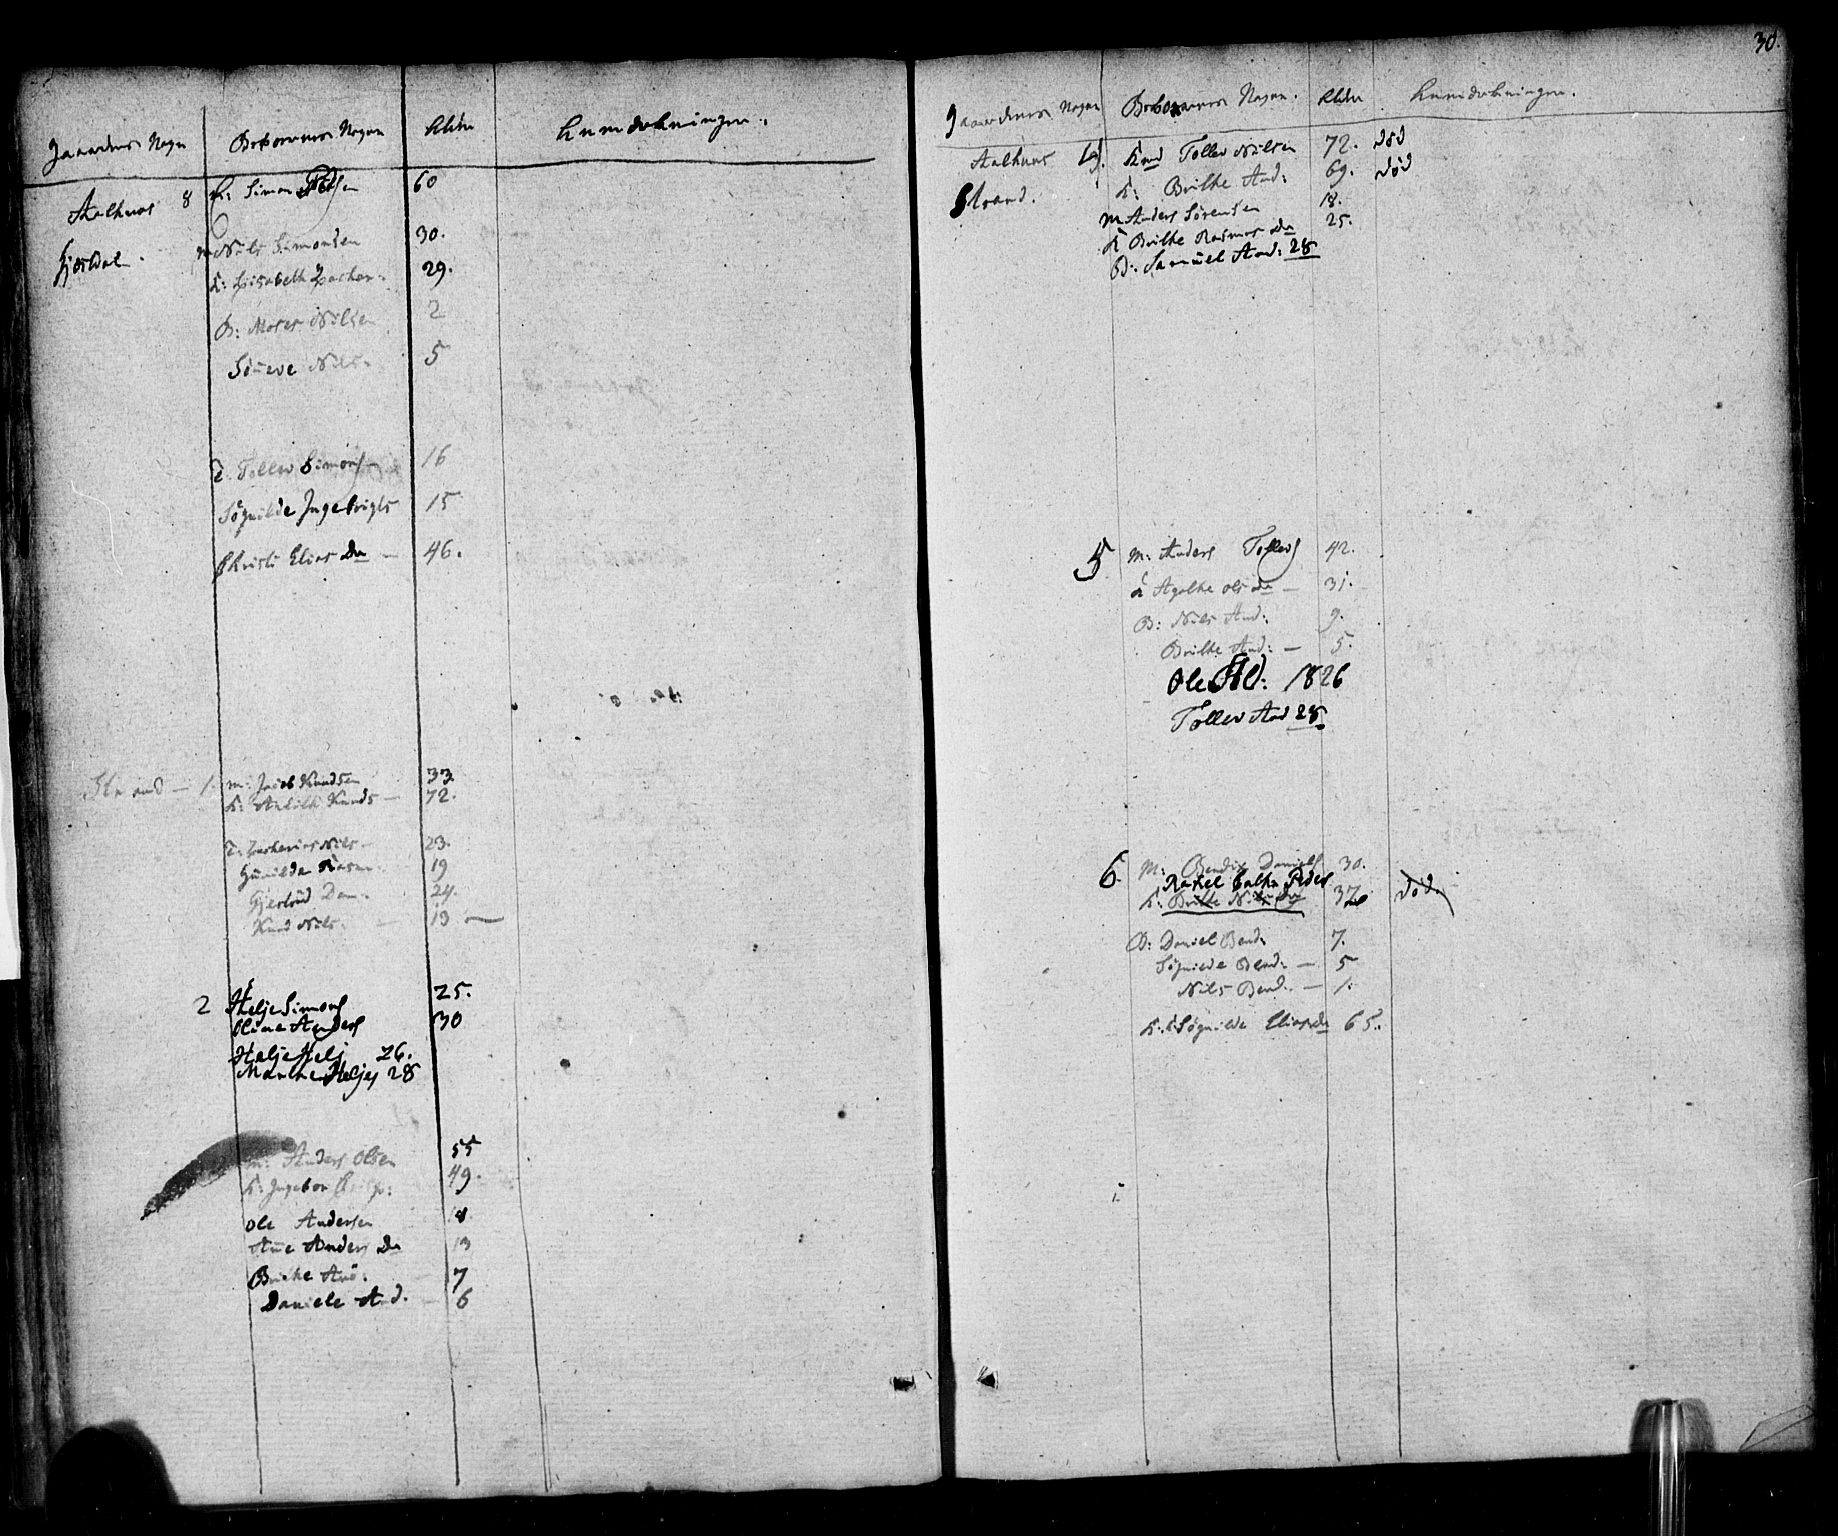 Gaardenes Navn Beboernes Navn Alder Anmærkninger.
Aalhuus 8 K: Simon Peds̅en 60
Gjesdal. m Nils Simonsen 30.
K: Lisabeth Zachar. 29.
B: Moses Nilsen 2
Sönneve Nils 5
T. Tollev Simons 16
Sögnilde Ingebrigts 15
Christi Elias Da — 46.
Strand — 1. m: Jacob Knudsen 33.
K: Knuds — 72.
T. Zacharias Nils — 23.
Gunilde Rasm. 19
Gjertrud Dan. 24.
Knud Nils. 13 —
2 Helje Simons 25.
Oline Anders 30
Halje Helj 26.
Marthe Heljes 28
m: Anders Olsen 55
K: Ingebor 49.
Ole Andersen 8.
Ane Anders Da 13
Brithe And: 7
Daniele And. — 6
30.
Gaardenes Navn Beboernes Navn. Alder Anmærkningen.
Aalhuus Tollev Nilsen 72. död
Strand. K: Brithe And: 69. död
m Anders Sörensen 18.
K Brithe Rasmus da 25.
B: Samuel And: 28
5 m: Anders Tollevs 42.
K Agathe Ols da — 31.
B: Nils And: 9.
Brithe And: — 5.
Ole And: 1826
Tollev And 28.
6. m: Bendix Daniels 30.
Rakel Peders
K: Brithe Nils Da 37 död
B: Daniel Bend: 7.
Sögnilde Bend: — 5
Nils Bend: — 1.
K: Sögnilde Elias da 65.